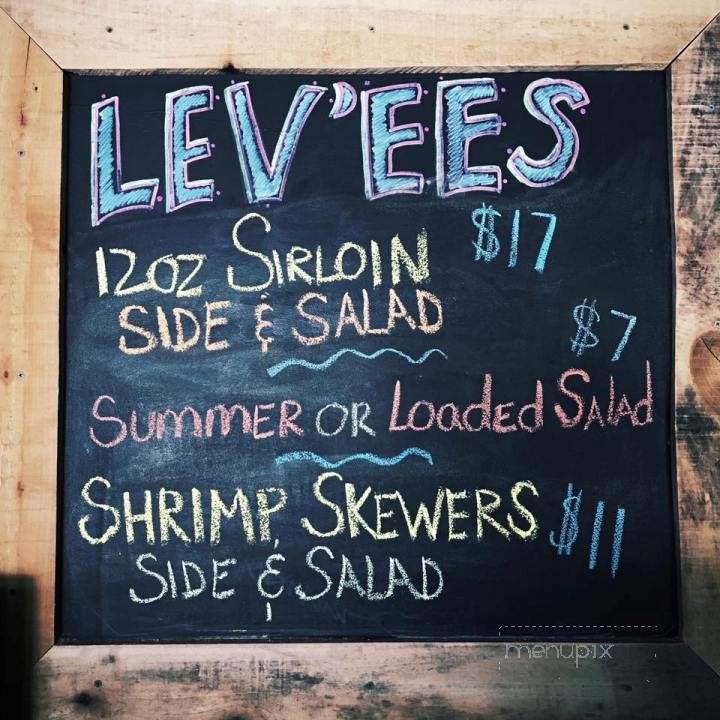 LEV'EES
12oz SIRLOIN $17
SIDE & SALAD
$7
Summer OR Loaded Salad
SHRIMP SKEWERS $11
SIDE & SALAD
menupix